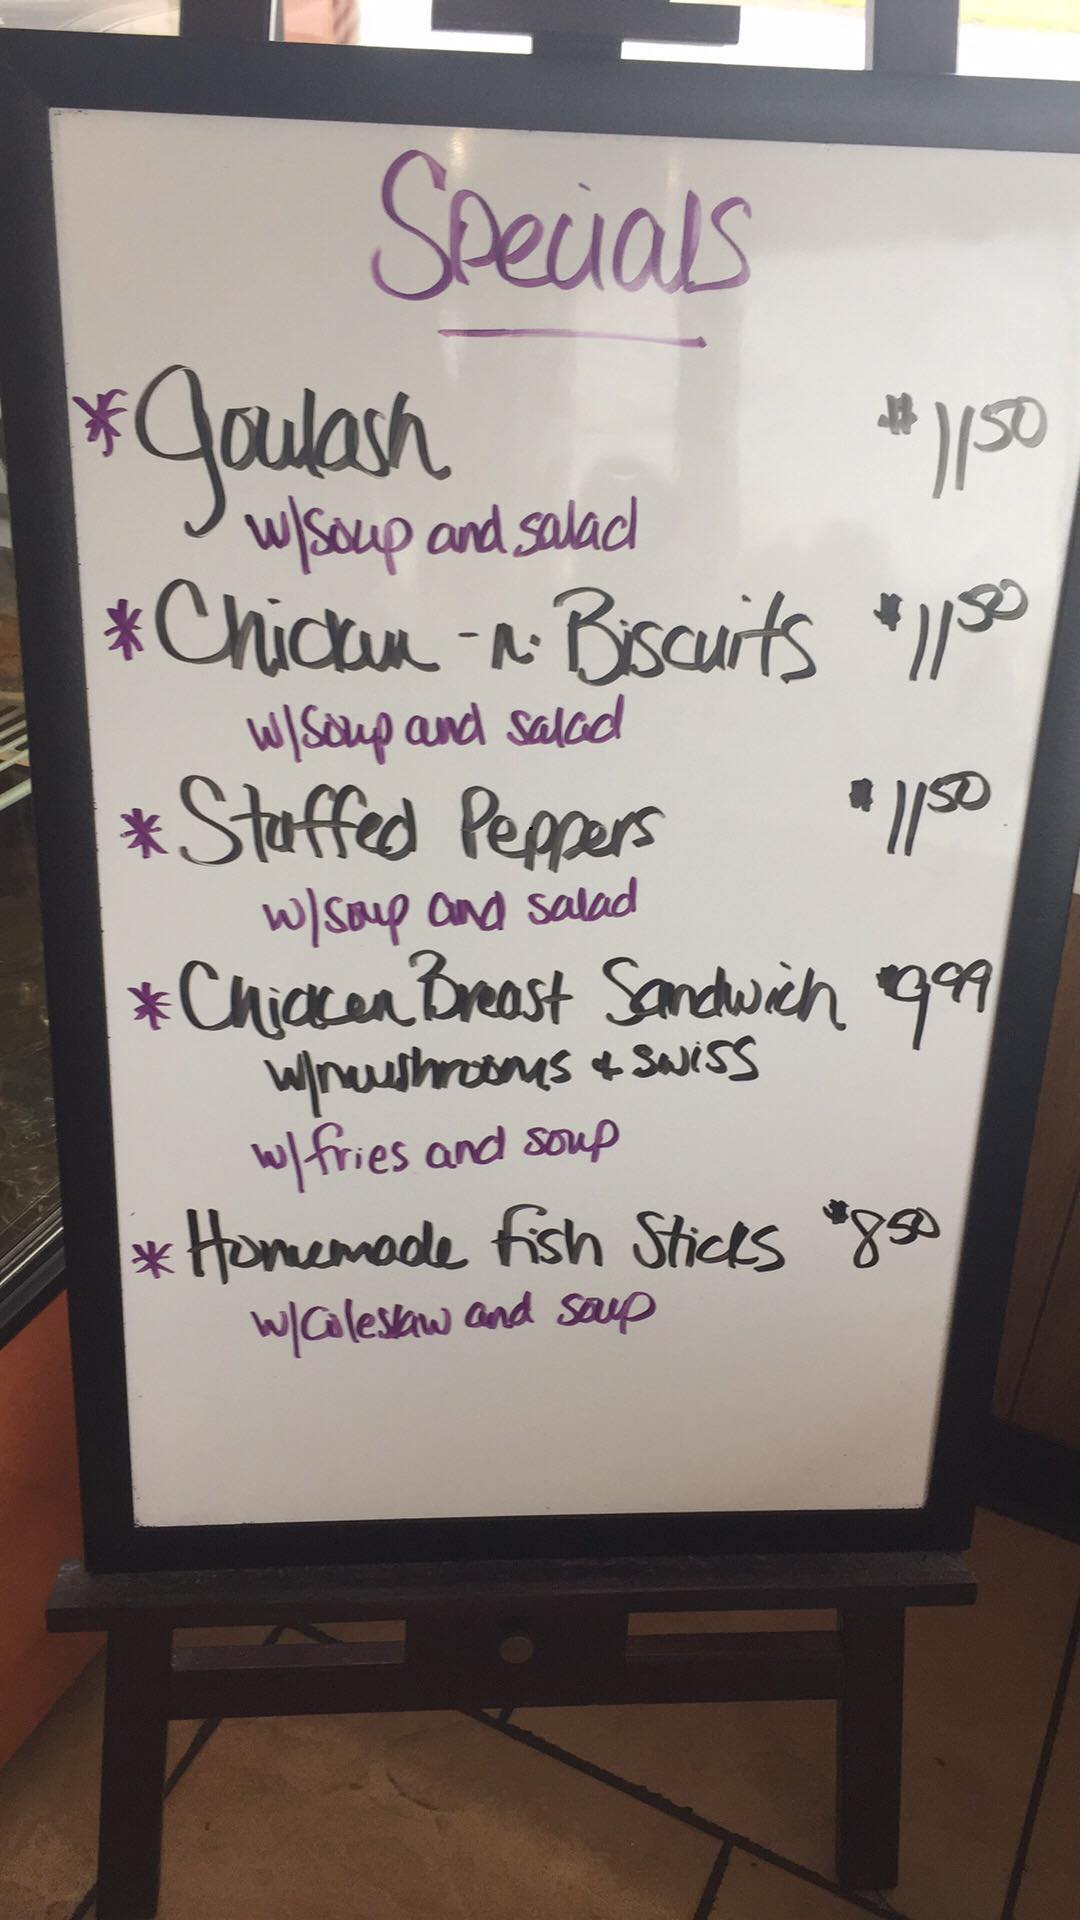 Specials
* Goulash $11.50
w/soup and salad
* Chicken -n- Biscuits $11.50
w/soup and salad
* Stuffed Peppers $11.50
w/soup and salad
* Chicken Breast Sandwich $9.99
w/mushrooms & swiss
w/fries and soup
* Homemade fish Sticks $8.50
w/coleslaw and soup